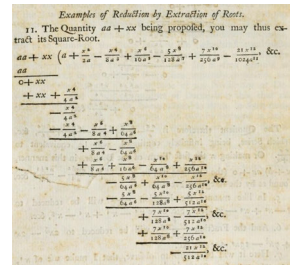 Examples of Reduction by Extraction of Roots.
11. The Quantity aa + xx being proposed, you may thus ex-
tract its Square-Root.
aa + xx (a + x²/2a − x⁴/8a³ + x⁶/16a⁵ − 5x⁸/128a⁷ + 7x¹⁰/256a⁹ − 21x¹²/1024a¹¹, &c.
aa
0 + xx
+ xx + x⁴/4a²
− x⁴/4a²
− x⁴/4a² − x⁶/8a⁴ + x⁸/64a⁶
+ x⁶/8a⁴ − x⁸/64a⁶
+ x⁶/8a⁴ + x⁸/16a⁶ − x¹⁰/64a⁸ + x¹²/256a¹⁰
− 5x⁸/64a⁶ + x¹⁰/64a⁸ − x¹²/256a¹⁰, &c.
− 5x⁸/64a⁶ − 5x¹⁰/128a⁸ + 5x¹²/512a¹⁰
+ 7x¹⁰/128a⁸ − 7x¹²/512a¹⁰, &c.
+ 7x¹⁰/128a⁸ + 7x¹²/256a¹⁰
− 21x¹²/512a¹⁰, &c.